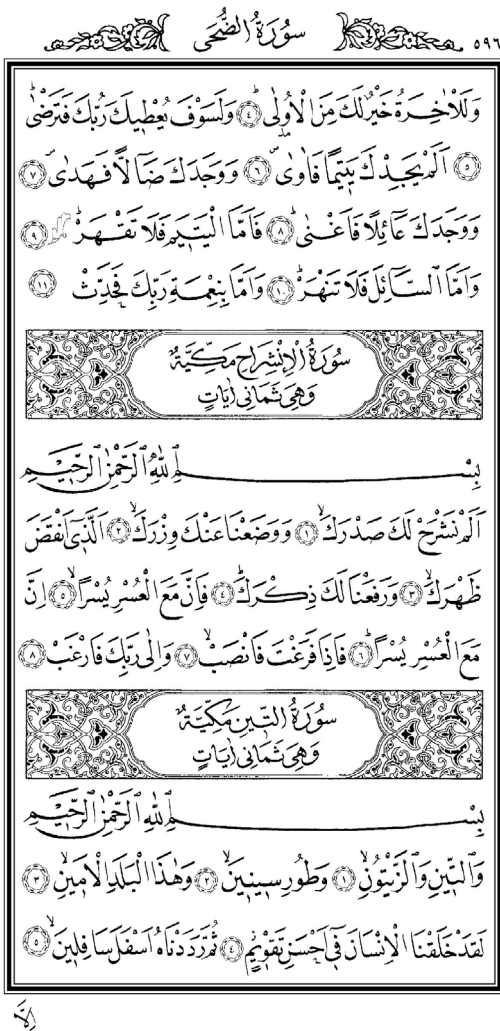 سُورَةُ الضُّحٰى ٥٩٦
وَلَلْاٰخِرَةُ خَيْرٌ لَكَ مِنَ الْاُو۫لٰىۜ ﴿٤﴾ وَلَسَوْفَ يُعْط۪يكَ رَبُّكَ فَتَرْضٰىۜ
﴿٥﴾ اَلَمْ يَجِدْكَ يَت۪يمًا فَاٰوٰىۖ ﴿٦﴾ وَوَجَدَكَ ضَٓالًّا فَهَدٰىۖ ﴿٧﴾
وَوَجَدَكَ عَٓائِلًا فَاَغْنٰىۜ ﴿٨﴾ فَاَمَّا الْيَت۪يمَ فَلَا تَقْهَرْۜ ﴿٩﴾
وَاَمَّا السَّٓائِلَ فَلَا تَنْهَرْۜ ﴿١٠﴾ وَاَمَّا بِنِعْمَةِ رَبِّكَ فَحَدِّثْ ﴿١١﴾
سُورَةُ الْاِنْشِرَاحِ مَكِّيَّةٌ
وَهِيَ ثَمَانِي اٰيَاتٍ
بِسْمِ اللّٰهِ الرَّحْمٰنِ الرَّح۪يمِ
اَلَمْ نَشْرَحْ لَكَ صَدْرَكَۙ ﴿١﴾ وَوَضَعْنَا عَنْكَ وِزْرَكَۙ ﴿٢﴾ اَلَّذ۪ٓي اَنْقَضَ
ظَهْرَكَۙ ﴿٣﴾ وَرَفَعْنَا لَكَ ذِكْرَكَۜ ﴿٤﴾ فَاِنَّ مَعَ الْعُسْرِ يُسْرًاۙ ﴿٥﴾ اِنَّ
مَعَ الْعُسْرِ يُسْرًاۜ ﴿٦﴾ فَاِذَا فَرَغْتَ فَانْصَبْۙ ﴿٧﴾ وَاِلٰى رَبِّكَ فَارْغَبْ ﴿٨﴾
سُورَةُ التّ۪ينِ مَكِّيَّةٌ
وَهِيَ ثَمَانِي اٰيَاتٍ
بِسْمِ اللّٰهِ الرَّحْمٰنِ الرَّح۪يمِ
وَالتّ۪ينِ وَالزَّيْتُونِۙ ﴿١﴾ وَطُورِ س۪ين۪ينَۙ ﴿٢﴾ وَهٰذَا الْبَلَدِ الْاَم۪ينِۙ ﴿٣﴾
لَقَدْ خَلَقْنَا الْاِنْسَانَ ف۪ٓي اَحْسَنِ تَقْو۪يمٍۘ ﴿٤﴾ ثُمَّ رَدَدْنَاهُ اَسْفَلَ سَافِل۪ينَۙ ﴿٥﴾
اِلَّا